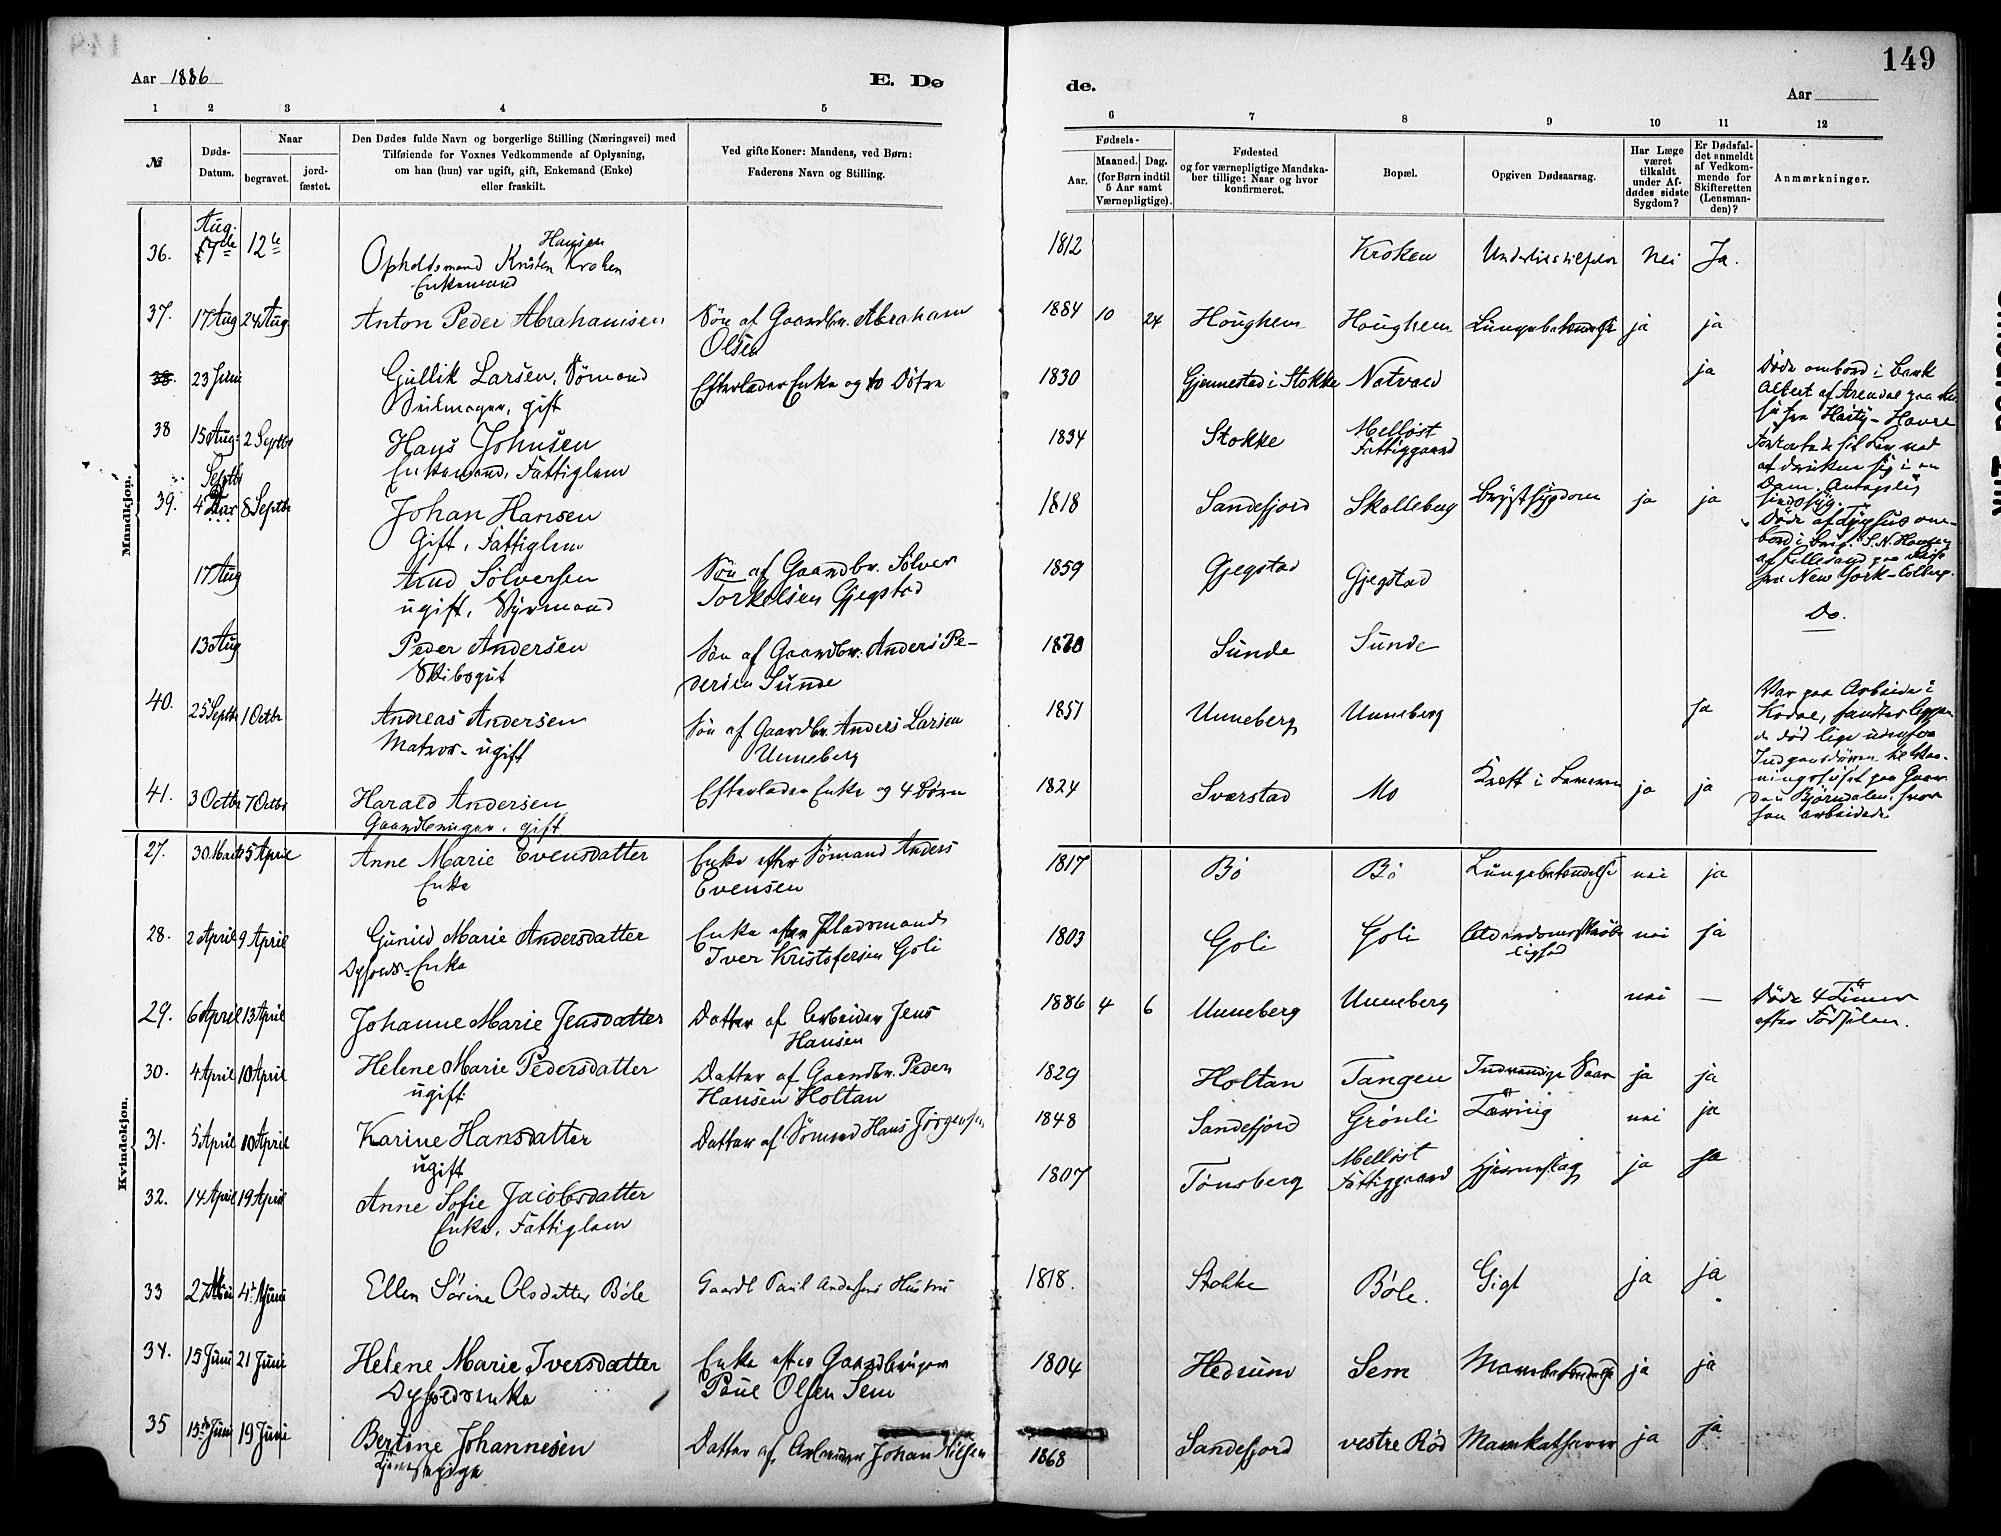 149
Aar 1886
E. Dø
de.
Aar
1 2 3 4 5
6 7 8 9 10 11 12
№
Døds-
Datum.
Naar
begravet.
jord-
fæstet.
Den Dødes fulde Navn og borgerlige Stilling (Næringsvei) med
Tilføiende for Voxnes Vedkommende af Oplysning,
om han (hun) var ugift, gift, Enkemand (Enke)
eller fraskilt.
Ved gifte Koner: Mandens, ved Børn:
Faderens Navn og Stilling.
Fødsels-
Aar.
Maaned. Dag.
(for Børn indtil
5 Aar samt
Værnepligtige).
Fødested
og for værnepligtige Mandska-
ber tillige: Naar og hvor
konfirmeret.
Bopæl.
Opgiven Dødsaarsag.
Har Læge
været
tilkaldt
under Af-
dødes sidste
Sygdom?
Er Dødsfal-
det anmeldt
af Vedkom-
mende for
Skifteretten
(Lensman-
den)?
Anmærkninger.
Mandkjøn.
Aug.
36. 7de 12te Hansen 1812 Kroken nei Ja.
Kristen Kroken
Enkemand
37. 17 Aug 24 Aug. Anton Peder Abrahamsen Søn af Gaardbr. Abraham 1884 10 24 Houghem Houghem Lungebetændelse ja ja
Olsen
38. 23 Juni Gullik Larsen, Sømand Efterlader Enke og to Døtre 1830 Gjennestad i Stokke Natvald ja Døde ombord i Bark
Seilmager, gift Albert af Arendal paa
fra Haity - Havre
38 15 Aug. 2 Septbr Hans Johnsen 1834 Stokke Melløst
Enkemand, Fattiglem Fattiggaard
af drukne sig i en
Dam. Antagelig
sindssyg.
Septbr
39. 4 8 Septbr Johan Hansen 1818 Sandefjord Skolleborg Brystsygdom ja ja
Gift, Fattiglem
Døde af Typhus om-
bord i Brig. S. N. Hansen
af Lillesand paa Reise
fra New York - Colberg.
17 Aug Sølversen Søn af Gaardbr. Sølver 1859 Gjegstad Gjegstad
ugift, Styrmand Torkelsen Gjegstad
Do.
13 Aug Peder Andersen Søn af Gaardbr. Anders Pe- Sunde Sunde
Skibsgut dersen Sunde
40. 25 Septbr 1 Octbr Andreas Andersen Søn af Gaardbr. Anders Larsen 1851 Unneberg Unneberg ja Var paa Arbeide i
Matros - ugift Unneberg Kodal, fandtes liggen
de død lige udenfor
Indgangsdøren til Vaa-
ningshuset paa Gaar
den Bjørndalen, hvor
han arbeidede.
41. 3 Octbr 7 Octbr Harald Andersen Efterlader Enke og 4 Børn 1824 Sværstad Mo Kræft i ja ja
Gaardbruger, gift
Kvindekjøn.
27. 30 Marts 5 April Anne Marie Evensdatter Enke efter Sømand Anders 1817 Bø Bø Lungebetændelse nei ja
Enke Evensen
28. 2 April 9 April Gunild Marie Andersdatter Enke efter Pladsmand 1803 Goli Goli Alderdomsskrøbe nei ja
Enke Iver Kristofersen Goli lighed
29. 6 April 13 April Johanne Marie Jensdatter Datter af Arbeider Jens 1886 4 6 Unneberg Unneberg nei — Døde 4 Timer
Hansen efter Fødselen.
30. 4 April 10 April Helene Marie Pedersdatter Datter af Gaardbr. Peder 1829 Holtan Tangen Indvendige Saar ja ja
ugift Hansen Holtan
31. 5 April 10 April Karine Hansdatter Datter af Sømand Hans Jørgensen 1848 Sandefjord Grønli Tæring nei ja
ugift
32. 14 April 19 April Anne Sofie Jacobsdatter 1807 Tønsberg Melløst Hjerneslag ja ja
Enke, Fattiglem Fattiggaard
33 27 Mai 4 Juni Ellen Sørine Olsdatter Bøle Gaardb Paul Andersens Hustru 1818. Stokke Bøle. Gigt ja ja
34. 15 Juni 21 Juni Helene Marie Iversdatter Enke efter Gaardbruger 1804 Hedrum Sem ja ja
Paul Olsen Sem
35 15de Juni 19 Juni Bertine Johannesen Datter af Arbeider Johan Nilsen 1868 Sandefjord vestre Rød ja ja
Tjenestepige